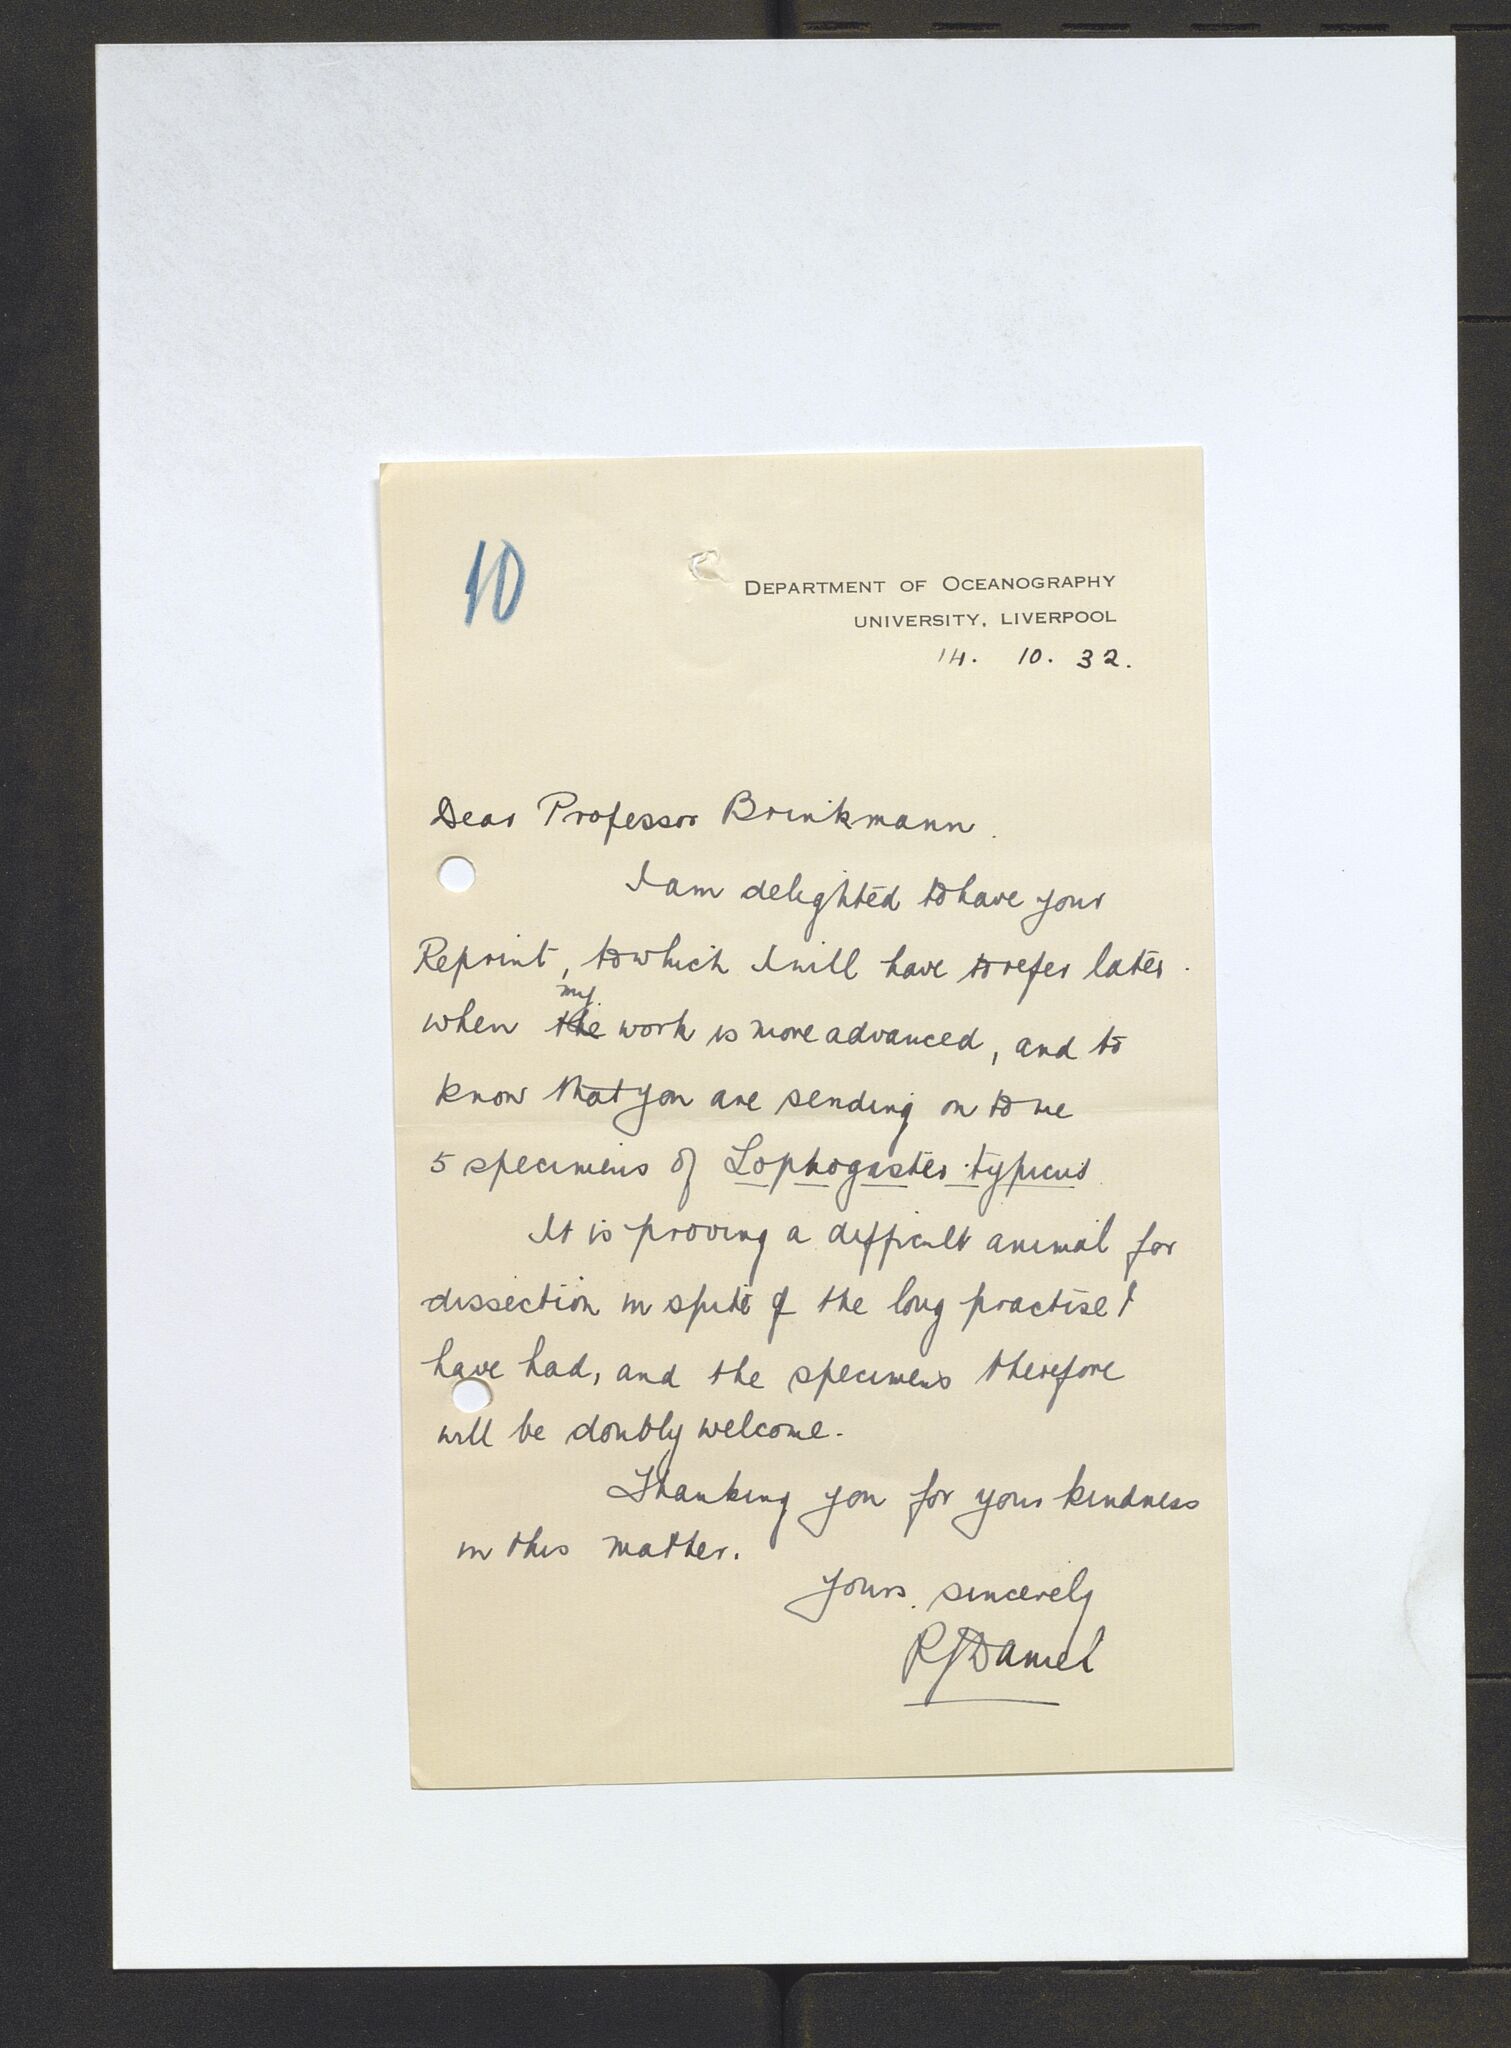 10
DEPARTMENT OF OCEANOGRAPHY
UNIVERSITY, LIVERPOOL
14. 10. 32.
Dear Professor Brinkmann.
I am delighted to have your
Reprint, to which I will have to refer later.
my
when the work is more advanced, and to
know that you are sending on to me
5 specimens of Lophogaster typicus
It is proving a difficult animal for
dissection in spite of the long practise I
have had, and the specimens therefore
will be doubly welcome.
Thanking you for your kindness
in this matter.
Yours sincerely
RJDaniel